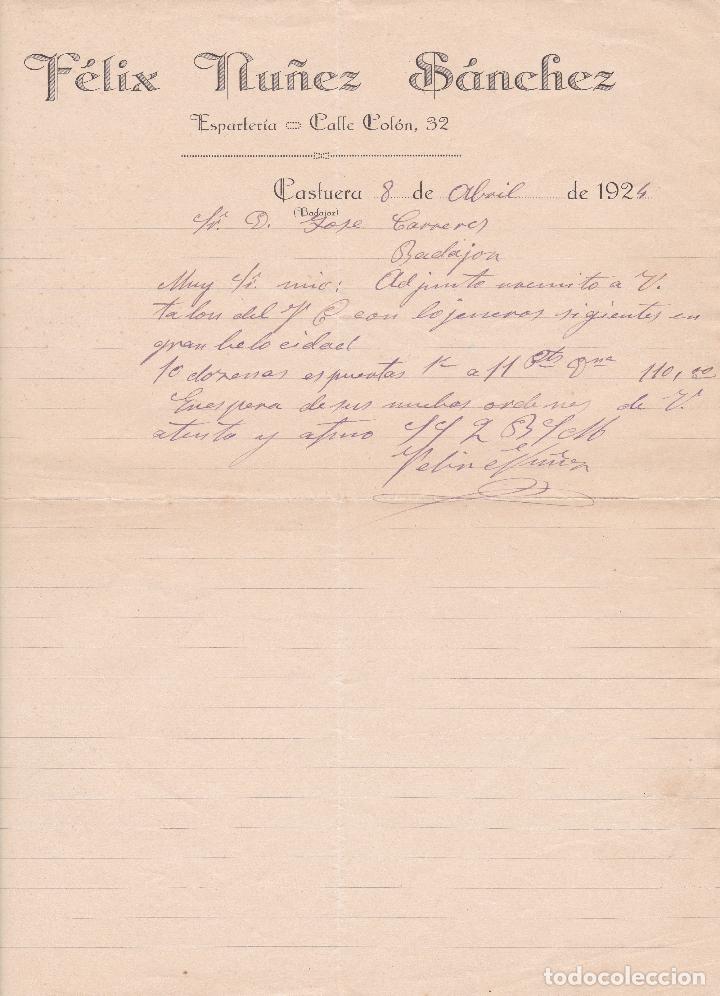 Félix Nuñez Sánchez
Espartería Calle Colón, 32
Castuera 8 de Abril de 1924
(Badajoz)
Sr. D. Jose Carreres
Badajoz
Muy Sr. mio: Adjunto a V.
talon del F C con lo jeneros sigientes en
gran belocidad
10 dozenas espuertas 1ª a 11 Pts 110,00
En espera de sus ordenes de V.
atento y afmo S S Q B S M
Felix Nuñez
todocoleccion